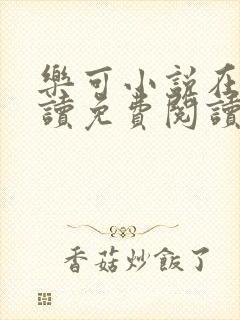 樂可小說在
讀免費閱讀
香菇炒飯了